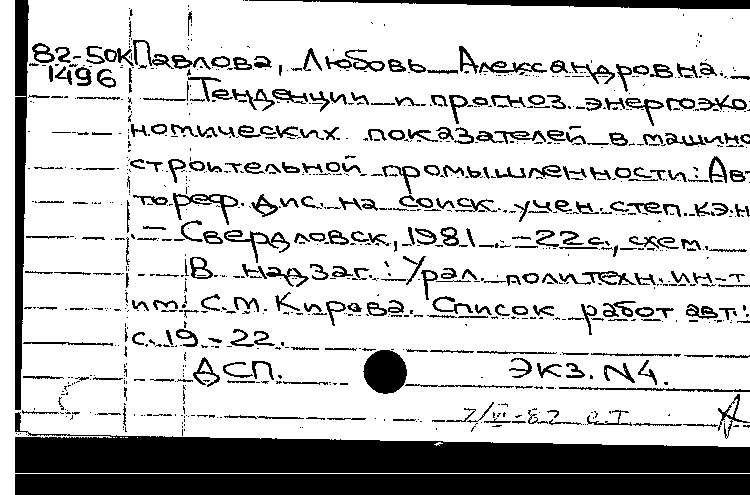 82-50К Павлова, Любовь Александровна.
1496 Тенденции и прогноз энергоэко
номических показателей в машино
строительной промышленности: Ав
тореф. дис. на соиск. учен. степ. к.э.н
. — Свердловск, 1981. -22с., схем.
В надзаг.: Урал. политехн. ин-т
им. С.М. Кирова. Список работ авт.:
с. 19-22.
ДСП. Экз. N4.
7/VI-82 с.т